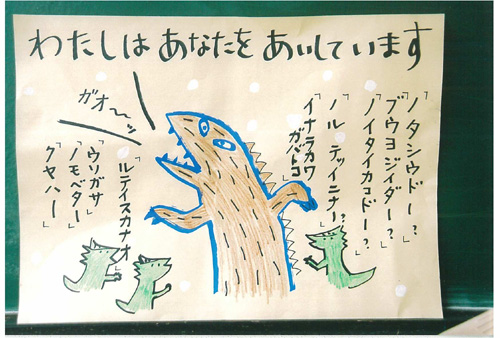 わたしは あなたを あいしています
「ノタシウドー?」
「ブウヨジイダー?」
「ノイタイカコドー?」
「ノルテッイニナー?」
「イナラカワ
ガバトコ」
ガオ〜ッ
「ルテイスカナオ」
「ウソガサ
ノモベター」
「クヤハー」